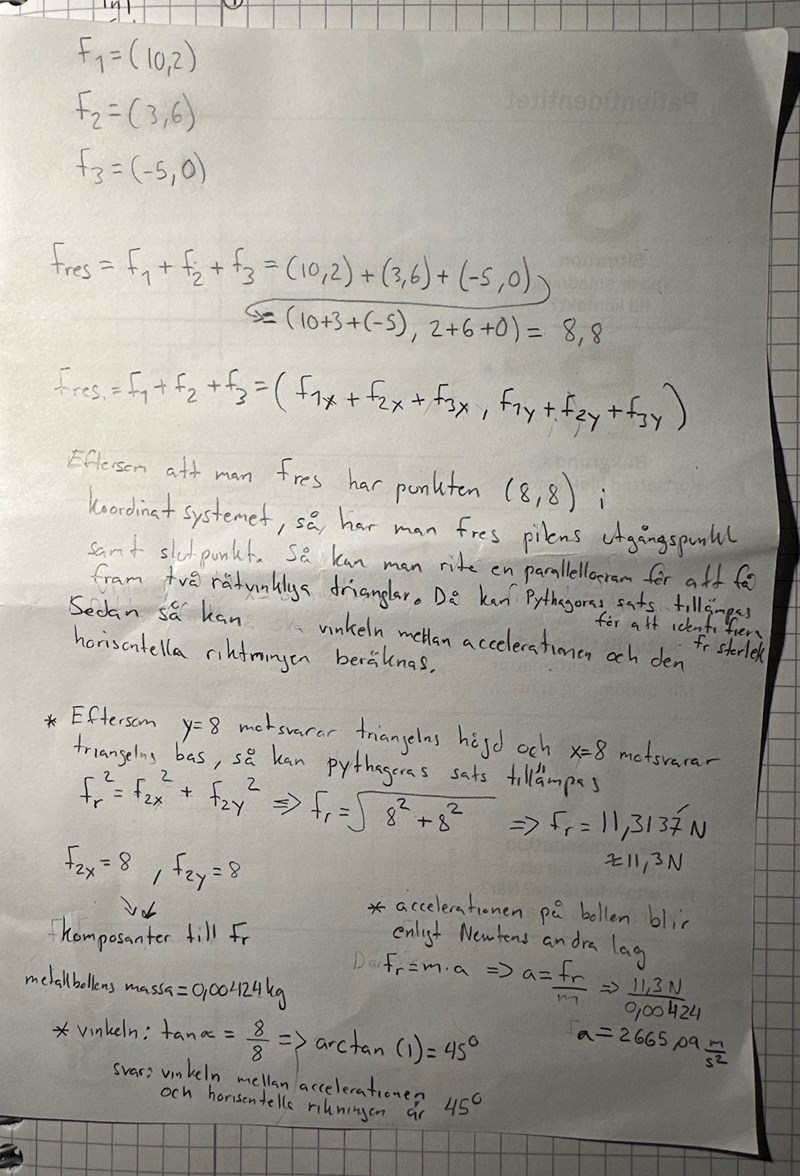 F₁=(10,2)
F₂=(3,6)
f₃=(-5,0)
fres = f₁ + f₂ + f₃ = (10,2) + (3,6) + (-5,0)
= (10+3+(-5), 2+6+0) = 8,8
fres. = f₁ + f₂ + f₃ = ( f₁x + f₂x + f₃x , f₁y + f₂y + f₃y )
Eftersom att man fres har punkten (8,8) i
koordinat systemet, så har man fres pilens utgångspunkt
samt slutpunkt. Så kan man rita en parallellogram för att få
fram två rätvinkliga trianglar. Då kan Pythagoras sats tillämpas
för att identifiera
fr storlek
Sedan så kan vinkeln mellan accelerationen och den
horisontella riktningen beräknas.
* Eftersom y=8 motsvarar triangelns höjd och x=8 motsvarar
triangelns bas, så kan pythagoras sats tillämpas
fr² = f₂x² + f₂y² => fr = √8² + 8² => fr = 11,3137 N
≈ 11,3 N
f₂x = 8 , f₂y = 8
komposanter till fr
metallbollens massa = 0,00424 kg
* accelerationen på bollen blir
enligt Newtons andra lag
fr = m · a => a = fr/m => 11,3 N/0,00424
a = 2665,09 m/s²
* vinkeln: tan α = 8/8 => arctan (1) = 45°
svar: vinkeln mellan accelerationen
och horisentella rikningen är 45°